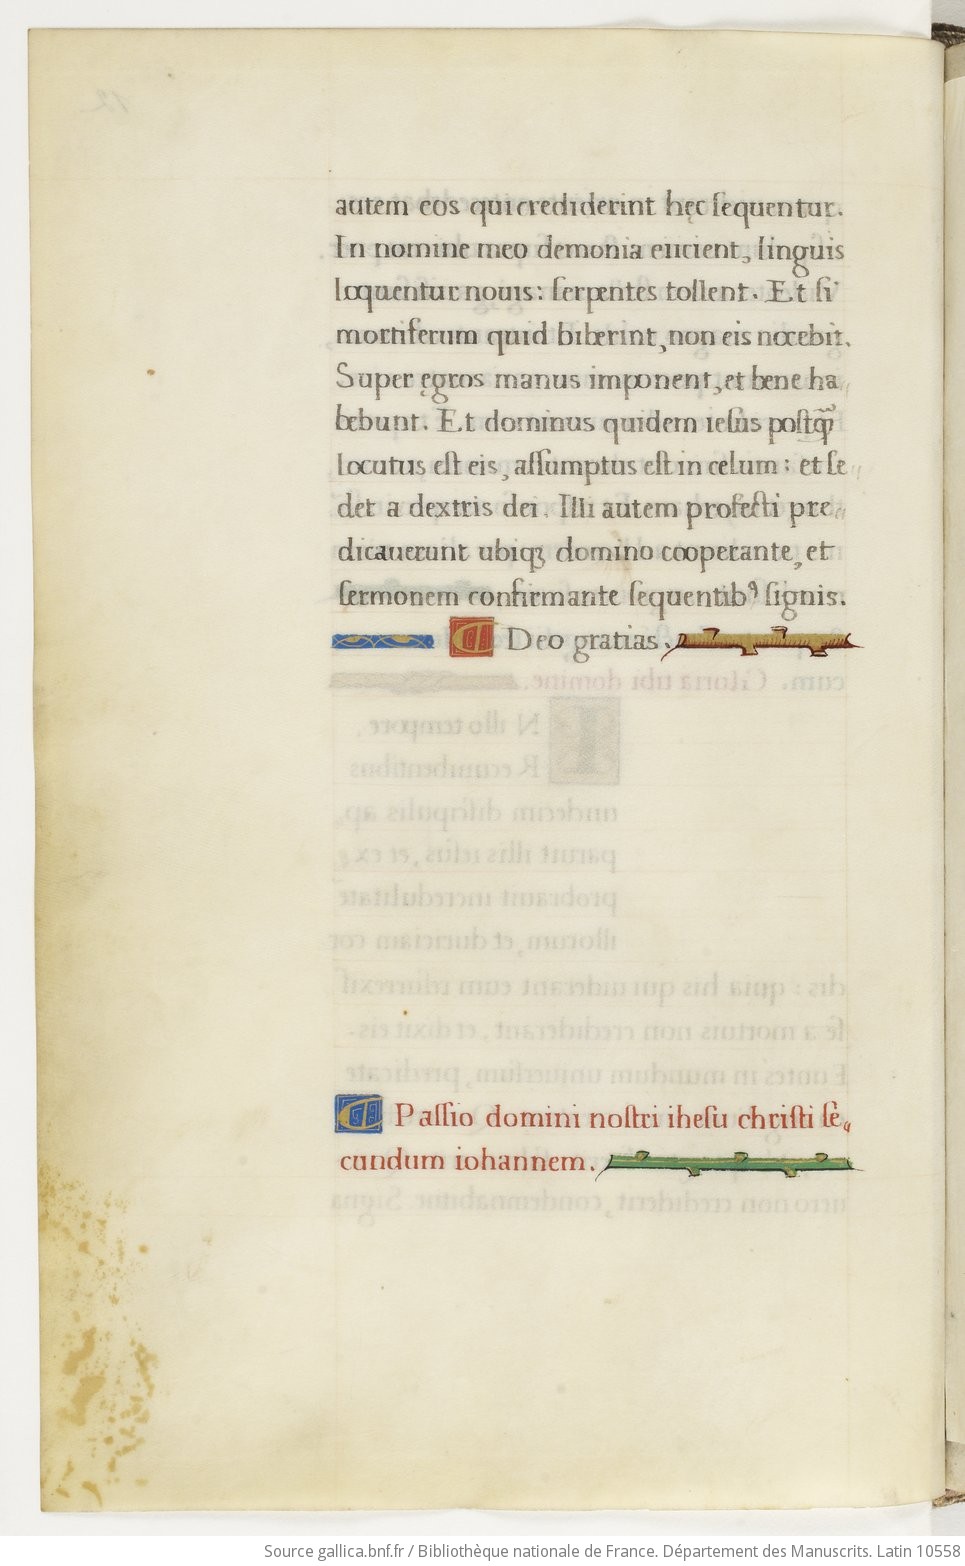 autem eos qui crediderint hęc ſequentur.
In nomine meo demonia eiicient, linguis
loquentur nouis: ſerpentes tollent. Et ſi
mortiferum quid biberint, non eis nocebit.
Super ęgros manus imponent, et bene ha
bebunt. Et dominus quidem ieſus poſtq̃
locutus eſt eis, aſſumptus eſt in celum: et ſe
det a dextris dei. Illi autem profecti pre
dicauerunt ubiqꝫ domino cooperante, et
ſermonem confirmante ſequentibꝰ ſignis.
Deo gratias.
Paſſio domini noſtri iheſu chriſti ſe
cundum iohannem.
Source gallica.bnf.fr / Bibliothèque nationale de France. Département des Manuscrits. Latin 10558